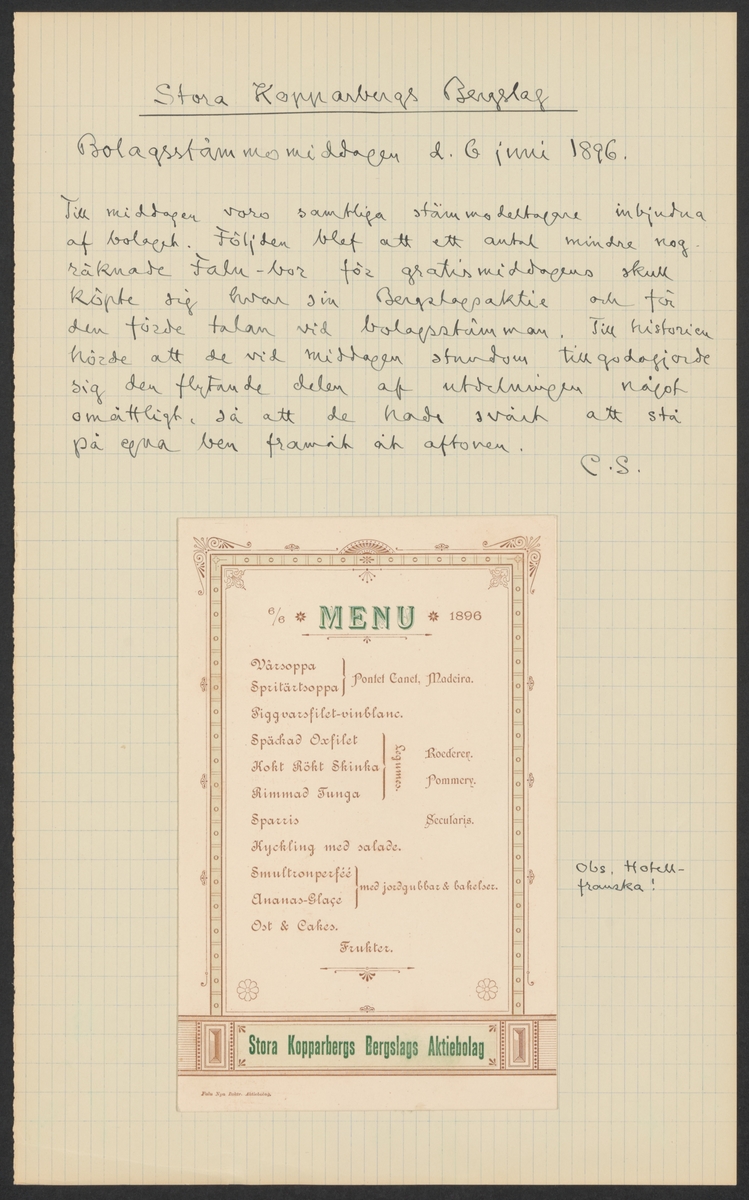 Stora Kopparbergs Bergslag
Bolagsstämmomiddagen d. 6 juni 1896.
Till middagen voro samtliga stämmodeltagare inbjudna
af bolaget. Följden blef att ett antal mindre nog-
räknade Falu-bor för gratismiddagens skull
köpte sig hvar sin Bergslagsaktie och för
den förde talan vid bolagsstämman. Till historien
hörde att de vid middagen stundom tillgodogjorde
sig den flytande delen af utdelningen något
omåttligt, så att de hade svårt att stå
på egna ben framåt åt aftonen.
C.S.
6/6 MENU 1896
Vårsoppa
Spritärtsoppa
Pontet Canet, Madeira.
Piggvarsfilet-vinblanc.
Späckad Oxfilet
Kokt Rökt Skinka
Rimmad Tunga
Legumes.
Roederer.
Pommery.
Sparris Secularis.
Kyckling med salade.
Smultronperféé
Ananas-Glaçe
med jordgubbar & bakelser.
Ost & Cakes.
Frukter.
Stora Kopparbergs Bergslags Aktiebolag
Falu Nya Boktr. Aktiebolag.
Obs. Hotell-
franska!